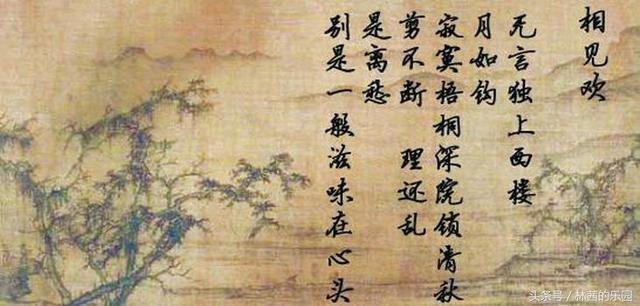 相见欢
无言独上西楼
月如钩
寂寞梧桐深院锁清秋
剪不断 理还乱
是离愁
别是一般滋味在心头
头条号/林茜的乐园